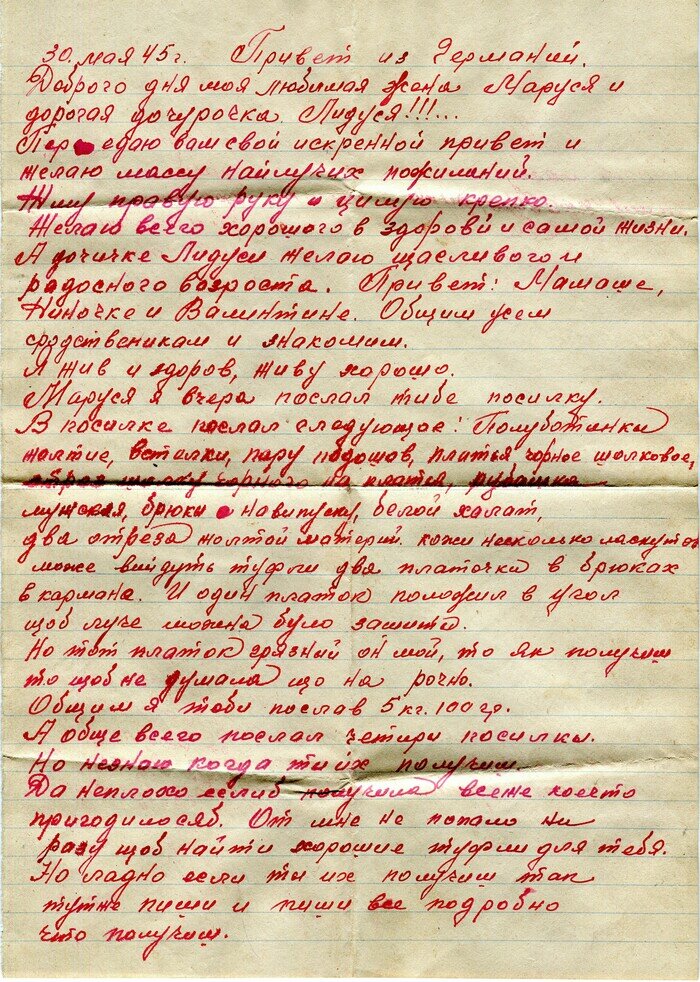 30 мая 45 г. Привет из Германий.
Доброго дня моя любимая жена Маруся и
дорогая дочурочка Лидуся!!!...
Передаю вам свой искренной привет и
желаю массу найлучих пожиланий.
Жму правую руку и цилую крепко.
Желаю всего хорошого в здоровй и самой жизни.
А дочичке Лидуси желаю щасливого и
радосного возроста. Привет: Мамаше,
Ниночке и Валинтине. Общим усем
сродственикам и знакомим.
Я жив и здоров, живу хорошо.
Маруся я вчера послал тибе посилку.
В посилке послал следующое: Полуботинки
жалтие, встелки, пару подошов, платья чорное шолковое,
отрез шолку чорного на платья, рубашка
мужская, брюки навипуск, белой халат,
два отреза жолтой материй. кожи несколько ласкутков
може вийдуть туфли два платочки в брюках
в кармана. И один платок положил в угол
щоб луче можна було зашити.
Но тот платок грязный он мой, то як получиш
то щоб не думала що на рочно.
Общим я тоби послав 5 кг. 100 гр.
А обще всего послал четири посилки.
Но незнаю когда ти их получиш.
Да неплохо еслиб получила все же коечто
пригодилосяб. От мне не попало ни
разу щоб найти хорошие туфли для тебя.
Но ладно если ти их получиш так
тутже пиши и пиши все подробно
что получиш.